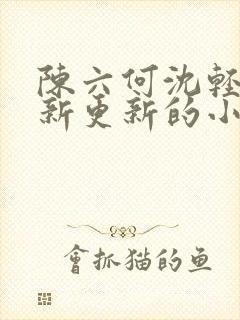 陳六何沈輕
新更新的小
會抓猫的鱼